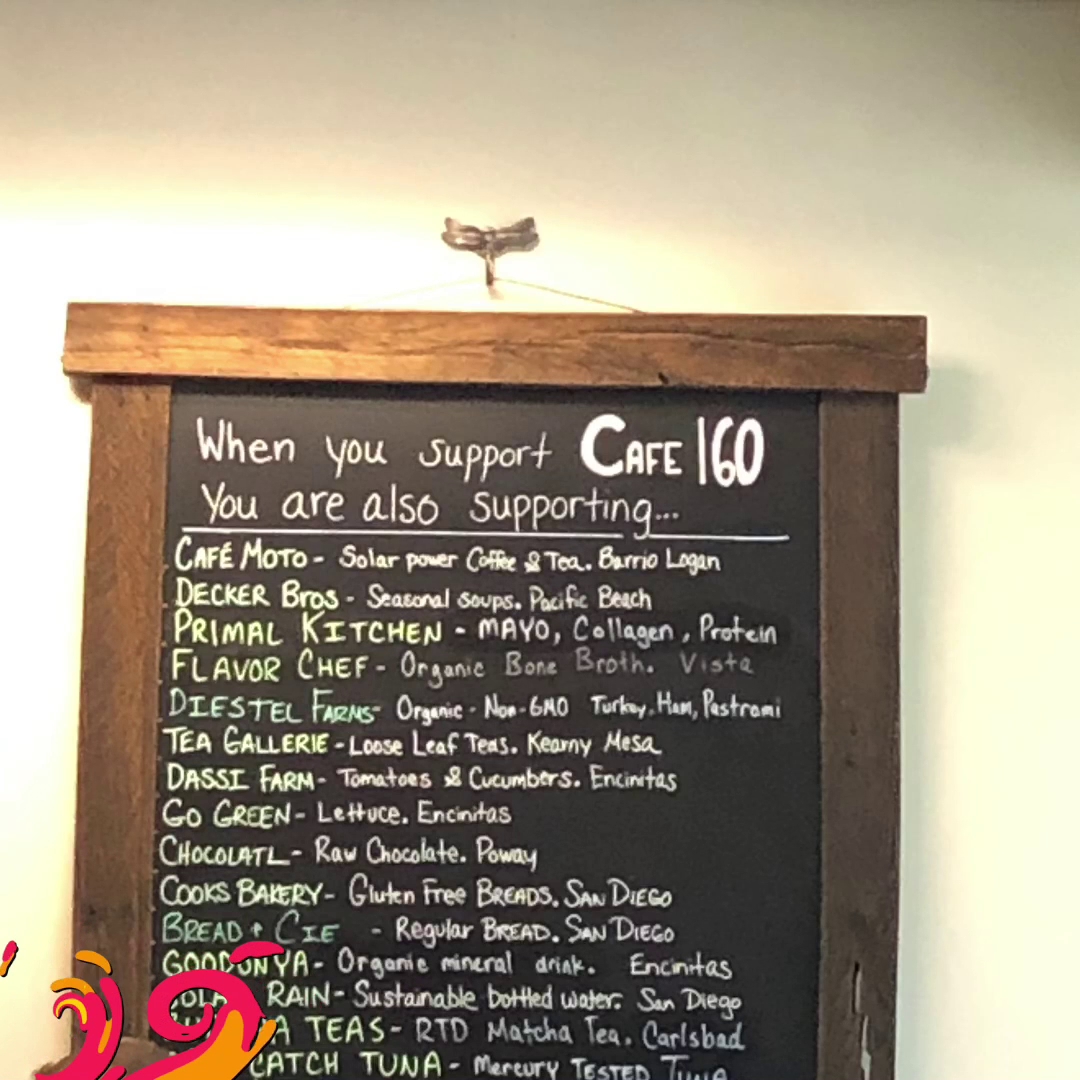 When you support CAFE 160
You are also supporting...
CAFÉ MOTO - Solar power Coffee & Tea. Barrio Logan
DECKER Bros - Seasonal soups. Pacific Beach
PRIMAL KITCHEN - MAYO, Collagen, Protein
FLAVOR CHEF - Organic Bone Broth. Vista
DIESTEL FARMS - Organic - Non-GMO Turkey, Ham, Pastrami
TEA GALLERIE - Loose Leaf Teas. Kearny Mesa
DASSI FARM - Tomatoes & Cucumbers. Encinitas
GO GREEN - Lettuce. Encinitas
CHOCOLATL - Raw Chocolate. Poway
COOKS BAKERY - Gluten Free BREADS. SAN DIEGO
BREAD + CIE - Regular BREAD. SAN DIEGO
GOODONYA - Organic mineral drink. Encinitas
RAIN - Sustainable bottled water. San Diego
TEAS - RTD Matcha Tea. Carlsbad
CATCH TUNA - Mercury TESTED TUNA